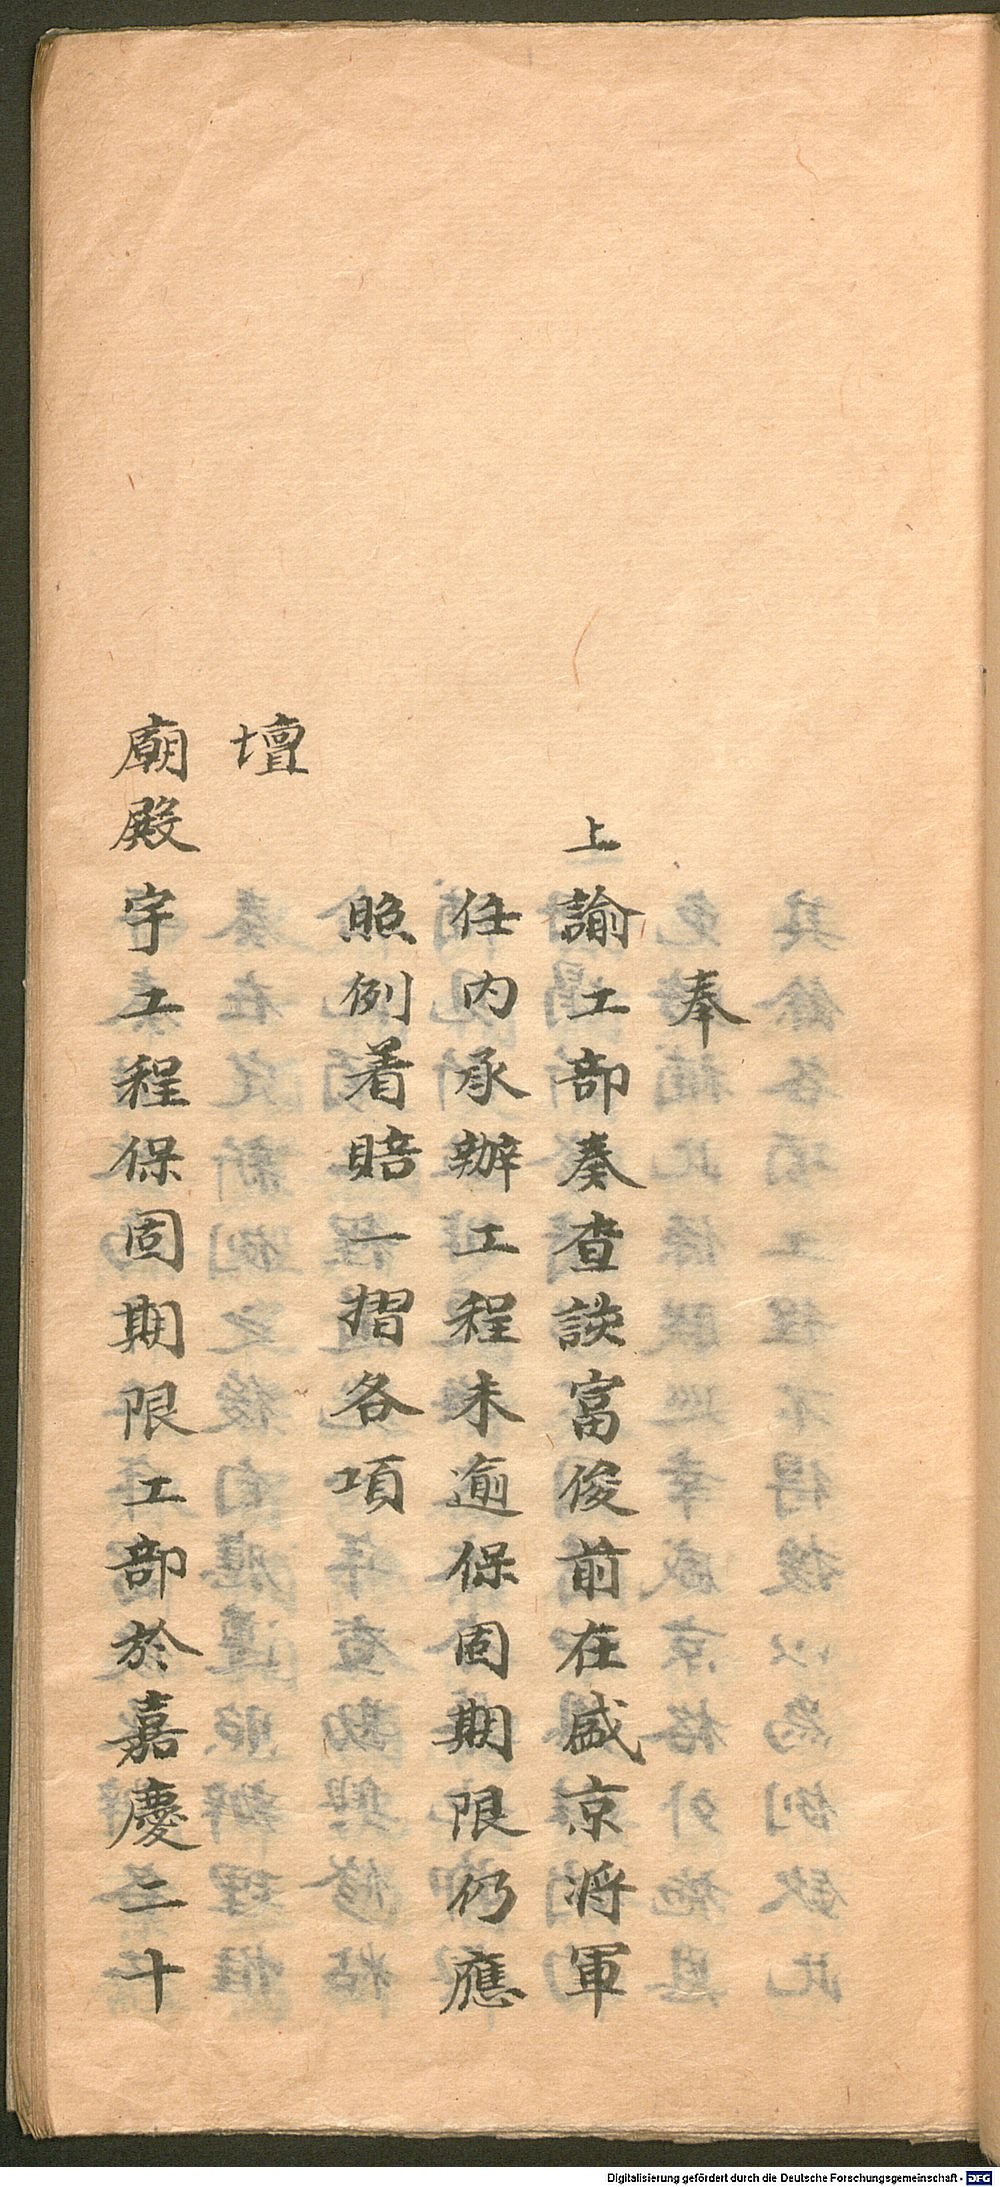 奉
上諭工部奏查談富俊前在盛京將軍
任內承辦工程未逾保固期限仍應
照例着賠一摺各項
壇
廟殿宇工程保固期限工部於嘉慶二十
Digitalisierung gefördert durch die Deutsche Forschungsgemeinschaft - DFG